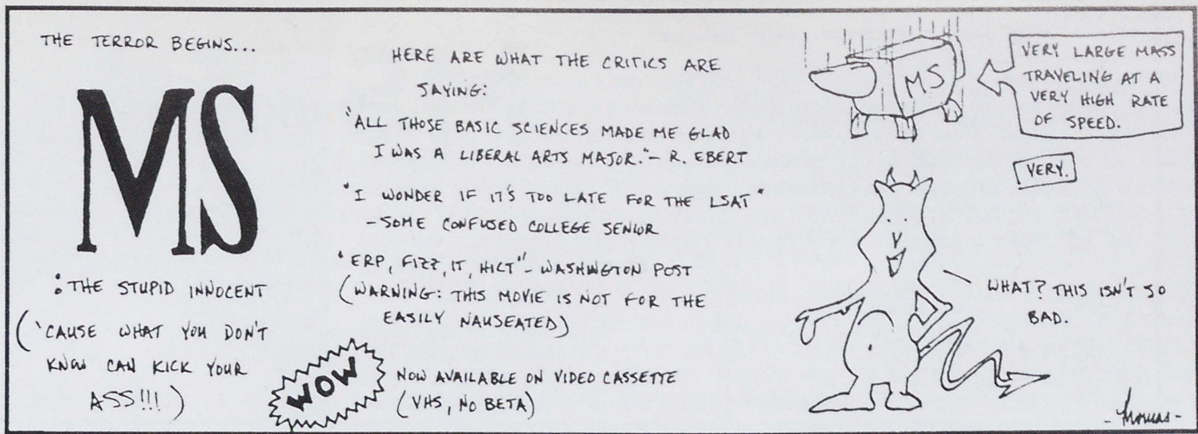 THE TERROR BEGINS...
MS
: THE STUPID INNOCENT
('CAUSE WHAT YOU DON'T
KNOW CAN KICK YOUR
ASS!!!)
HERE ARE WHAT THE CRITICS ARE
SAYING:
"ALL THOSE BASIC SCIENCES MADE ME GLAD
I WAS A LIBERAL ARTS MAJOR." - R. EBERT
"I WONDER IF IT'S TOO LATE FOR THE LSAT"
- SOME CONFUSED COLLEGE SENIOR
"ERP, FIZZ, IT, HICT" - WASHINGTON POST
(WARNING: THIS MOVIE IS NOT FOR THE
EASILY NAUSEATED)
WOW
NOW AVAILABLE ON VIDEO CASSETTE
(VHS, NO BETA)
MS
VERY LARGE MASS
TRAVELING AT A
VERY HIGH RATE
OF SPEED.
VERY.
WHAT? THIS ISN'T SO
BAD.
- Thomas -